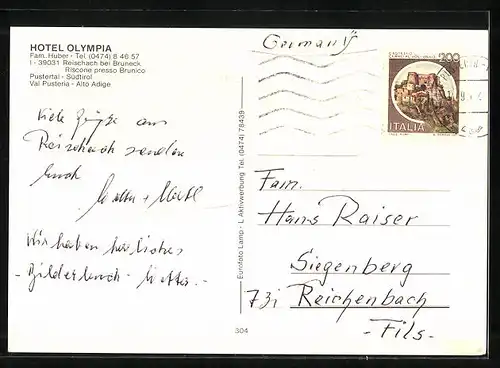 HOTEL OLYMPIA
Fam. Huber · Tel. (0474) 8 46 57
I - 39031 Reischach bei Bruneck
Riscone presso Brunico
Pustertal - Südtirol
Val Pusteria - Alto Adige
Viele Grüße aus
Reischach senden
Euch
Wir haben herrliches
- Bilderbuch-Wetter. -
Eurofoto Lamp - L Aktivwerbung Tel. (0474) 78439
304
Germany
200
ITALIA
Fam.
Hans Raiser
Siegenberg
73i Reichenbach
- Fils -